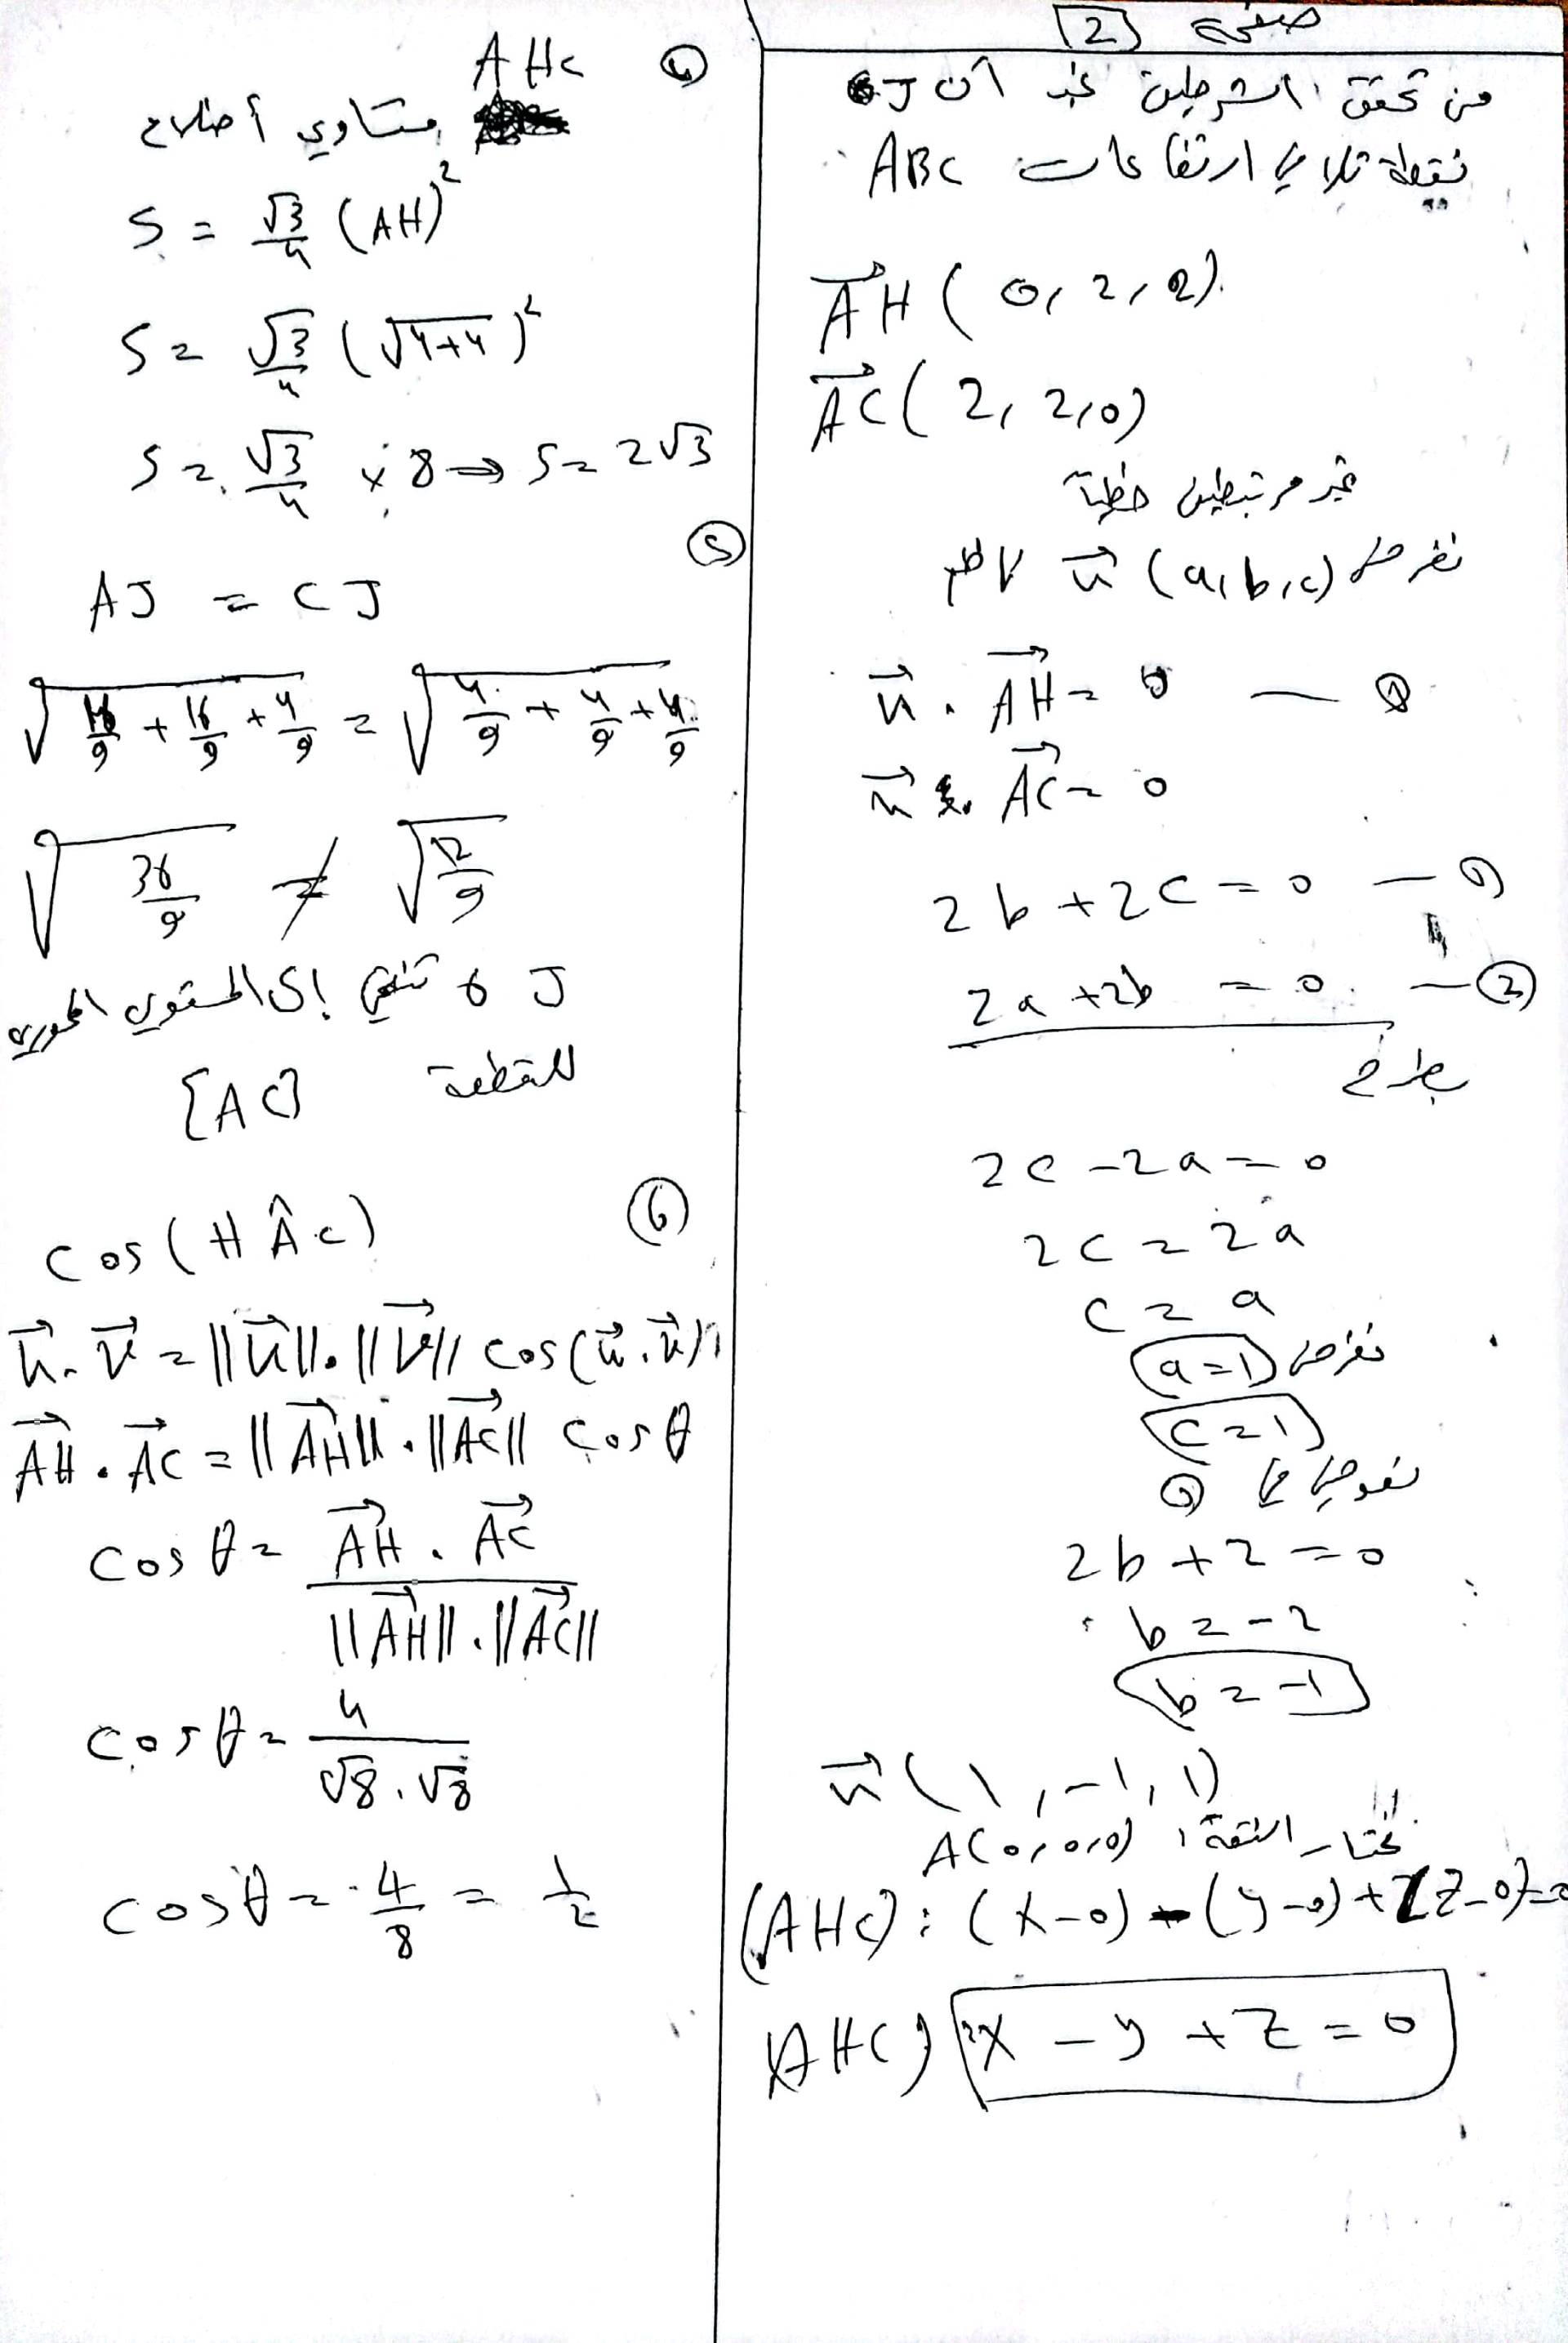 صفحة 2
من تحقق الشرطين نجد أن J
نقطة تلاقي ارتفاعات ABC
AH⃗ (0, 2, 2)
AC⃗ (2, 2, 0)
غير مرتبطين خطياً
نفرض n⃗ (a, b, c) ناظم
n⃗ . AH⃗ = 0 — ①
n⃗ . AC⃗ = 0
2b + 2c = 0 — ①
2a + 2b = 0 — ②
بطرح
2c - 2a = 0
2c = 2a
c = a
نفرض a = 1
c = 1
نعوض في ①
2b + 2 = 0
b = -2
b = -1
n⃗ (1, -1, 1)
نختار النقطة A(0, 0, 0)
(AHC): (x-0) - (y-0) + 1(z-0) = 0
(AHC) x - y + z = 0
④ AHC
متساوي أضلاع
S = √3/4 (AH)²
S = √3/4 (√4+4)²
S = √3/4 × 8 ⇒ S = 2√3
⑤
AJ = CJ
√16/9 + 16/9 + 4/9 = √4/9 + 4/9 + 4/9
√36/9 ≠ √12/9
J لا تنتمي إلى المستوي المحوري
للقطعة [AC]
⑥
cos(HÂC)
u⃗ . v⃗ = ||u⃗|| . ||v⃗|| cos(u⃗ . v⃗)
AH⃗ . AC⃗ = ||AH⃗|| . ||AC⃗|| cos θ
cos θ = AH⃗ . AC⃗ / ||AH⃗|| . ||AC⃗||
cos θ = 4 / √8 . √8
cos θ = 4/8 = 1/2